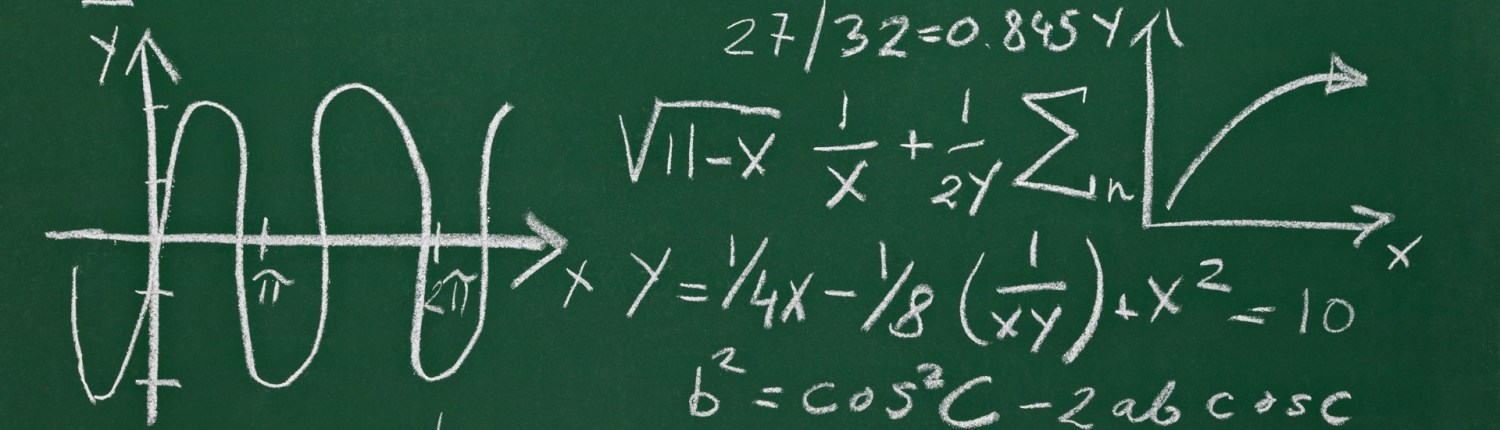 Y
π
2π
X
27/32=0.845
√11-X 1/X + 1/2Y Σn
Y
X
Y = 1/4X - 1/8 (1/XY) + X² = 10
b² = cos²C - 2ab cosc